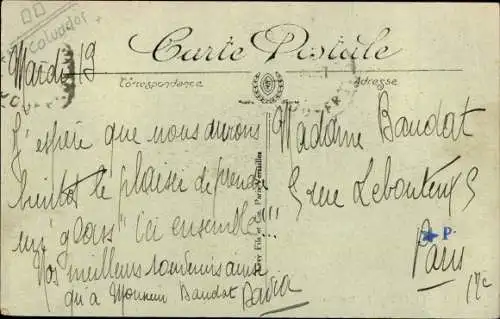 Calvados
Carte Postale
Correspondance
Adresse
Mardi 19
J'espère que nous aurons
bientôt le plaisir de prendre
un "glass" ici ensemble!!
Nos meilleurs souvenirs ainsi
qu'à Monsieur Baudat
Madame Baudat
5 rue Lebouteux
Paris
17e
P
Fils et Paris-Versailles